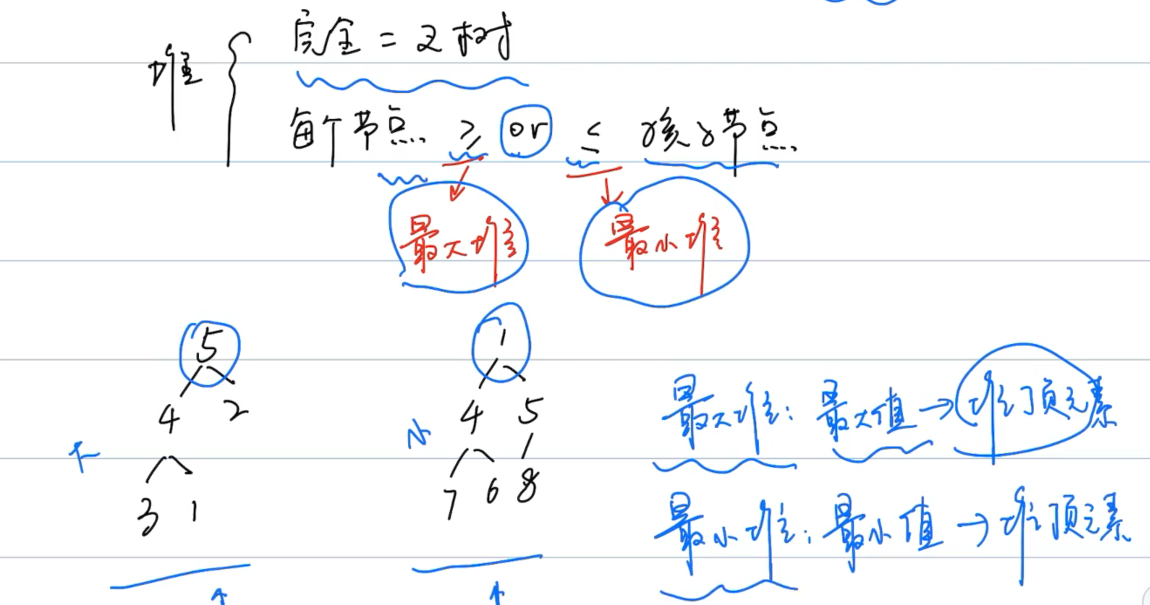 堆 { 完全二叉树
每个节点 ≥ or ≤ 孩子节点
最大堆 最小堆
5 1
4 2 4 5
大 小
3 1 7 6 8
最大堆: 最大值 → 堆顶元素
最小堆: 最小值 → 堆顶元素